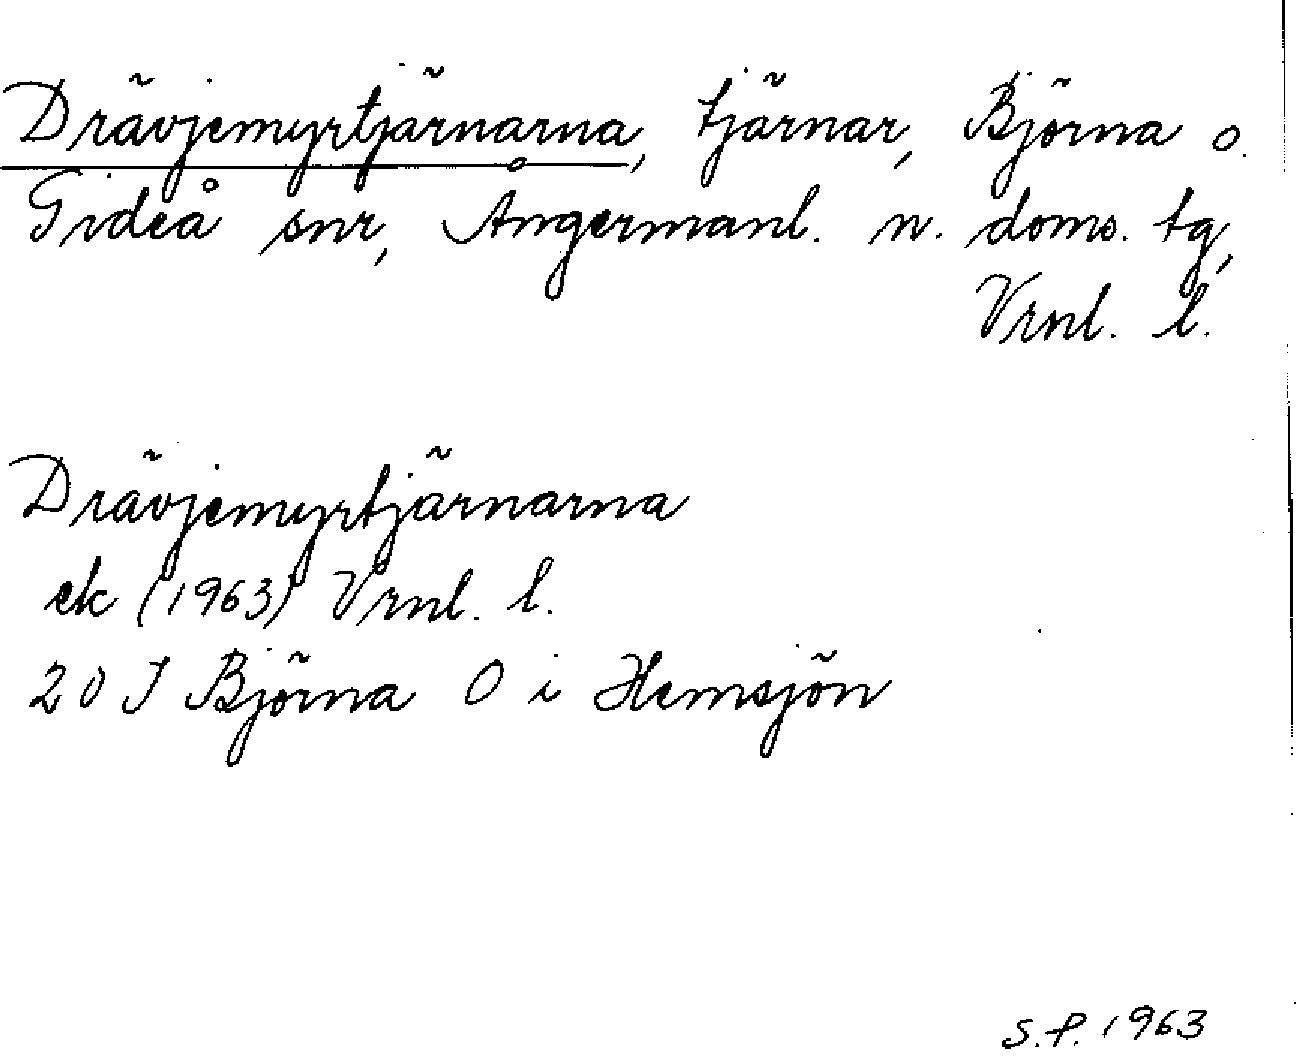 Drävjemyrtjärnarna, tjärnar, Björna o.
Gideå snr, Ångermanl. n. doms. tg,
Vrnl. l.
Drävjemyrtjärnarna
ek (1963) Vrnl. l.
20 J Björna O i Hemsjön
S.P. 1963